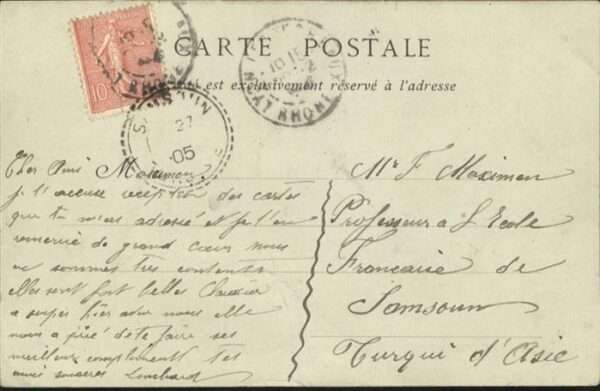 CARTE POSTALE
est exclusivement réservé à l'adresse
10
LYON RHONE
SAMSOUN
27
05
Cher Ami Maximen
je t'accuse reception des cartes
que tu m'as adressé et je t'en
remercie de grand cœur nous
ne sommes tres contents
elles sont fort belles
a soupé hier avec nous elle
nous a prié de te faire ses
meilleurs compliments tes
amis sinceres
Mr F Maximen
Professeur a L'Ecole
Francaise de
Samsoun
Turqui d'Asie